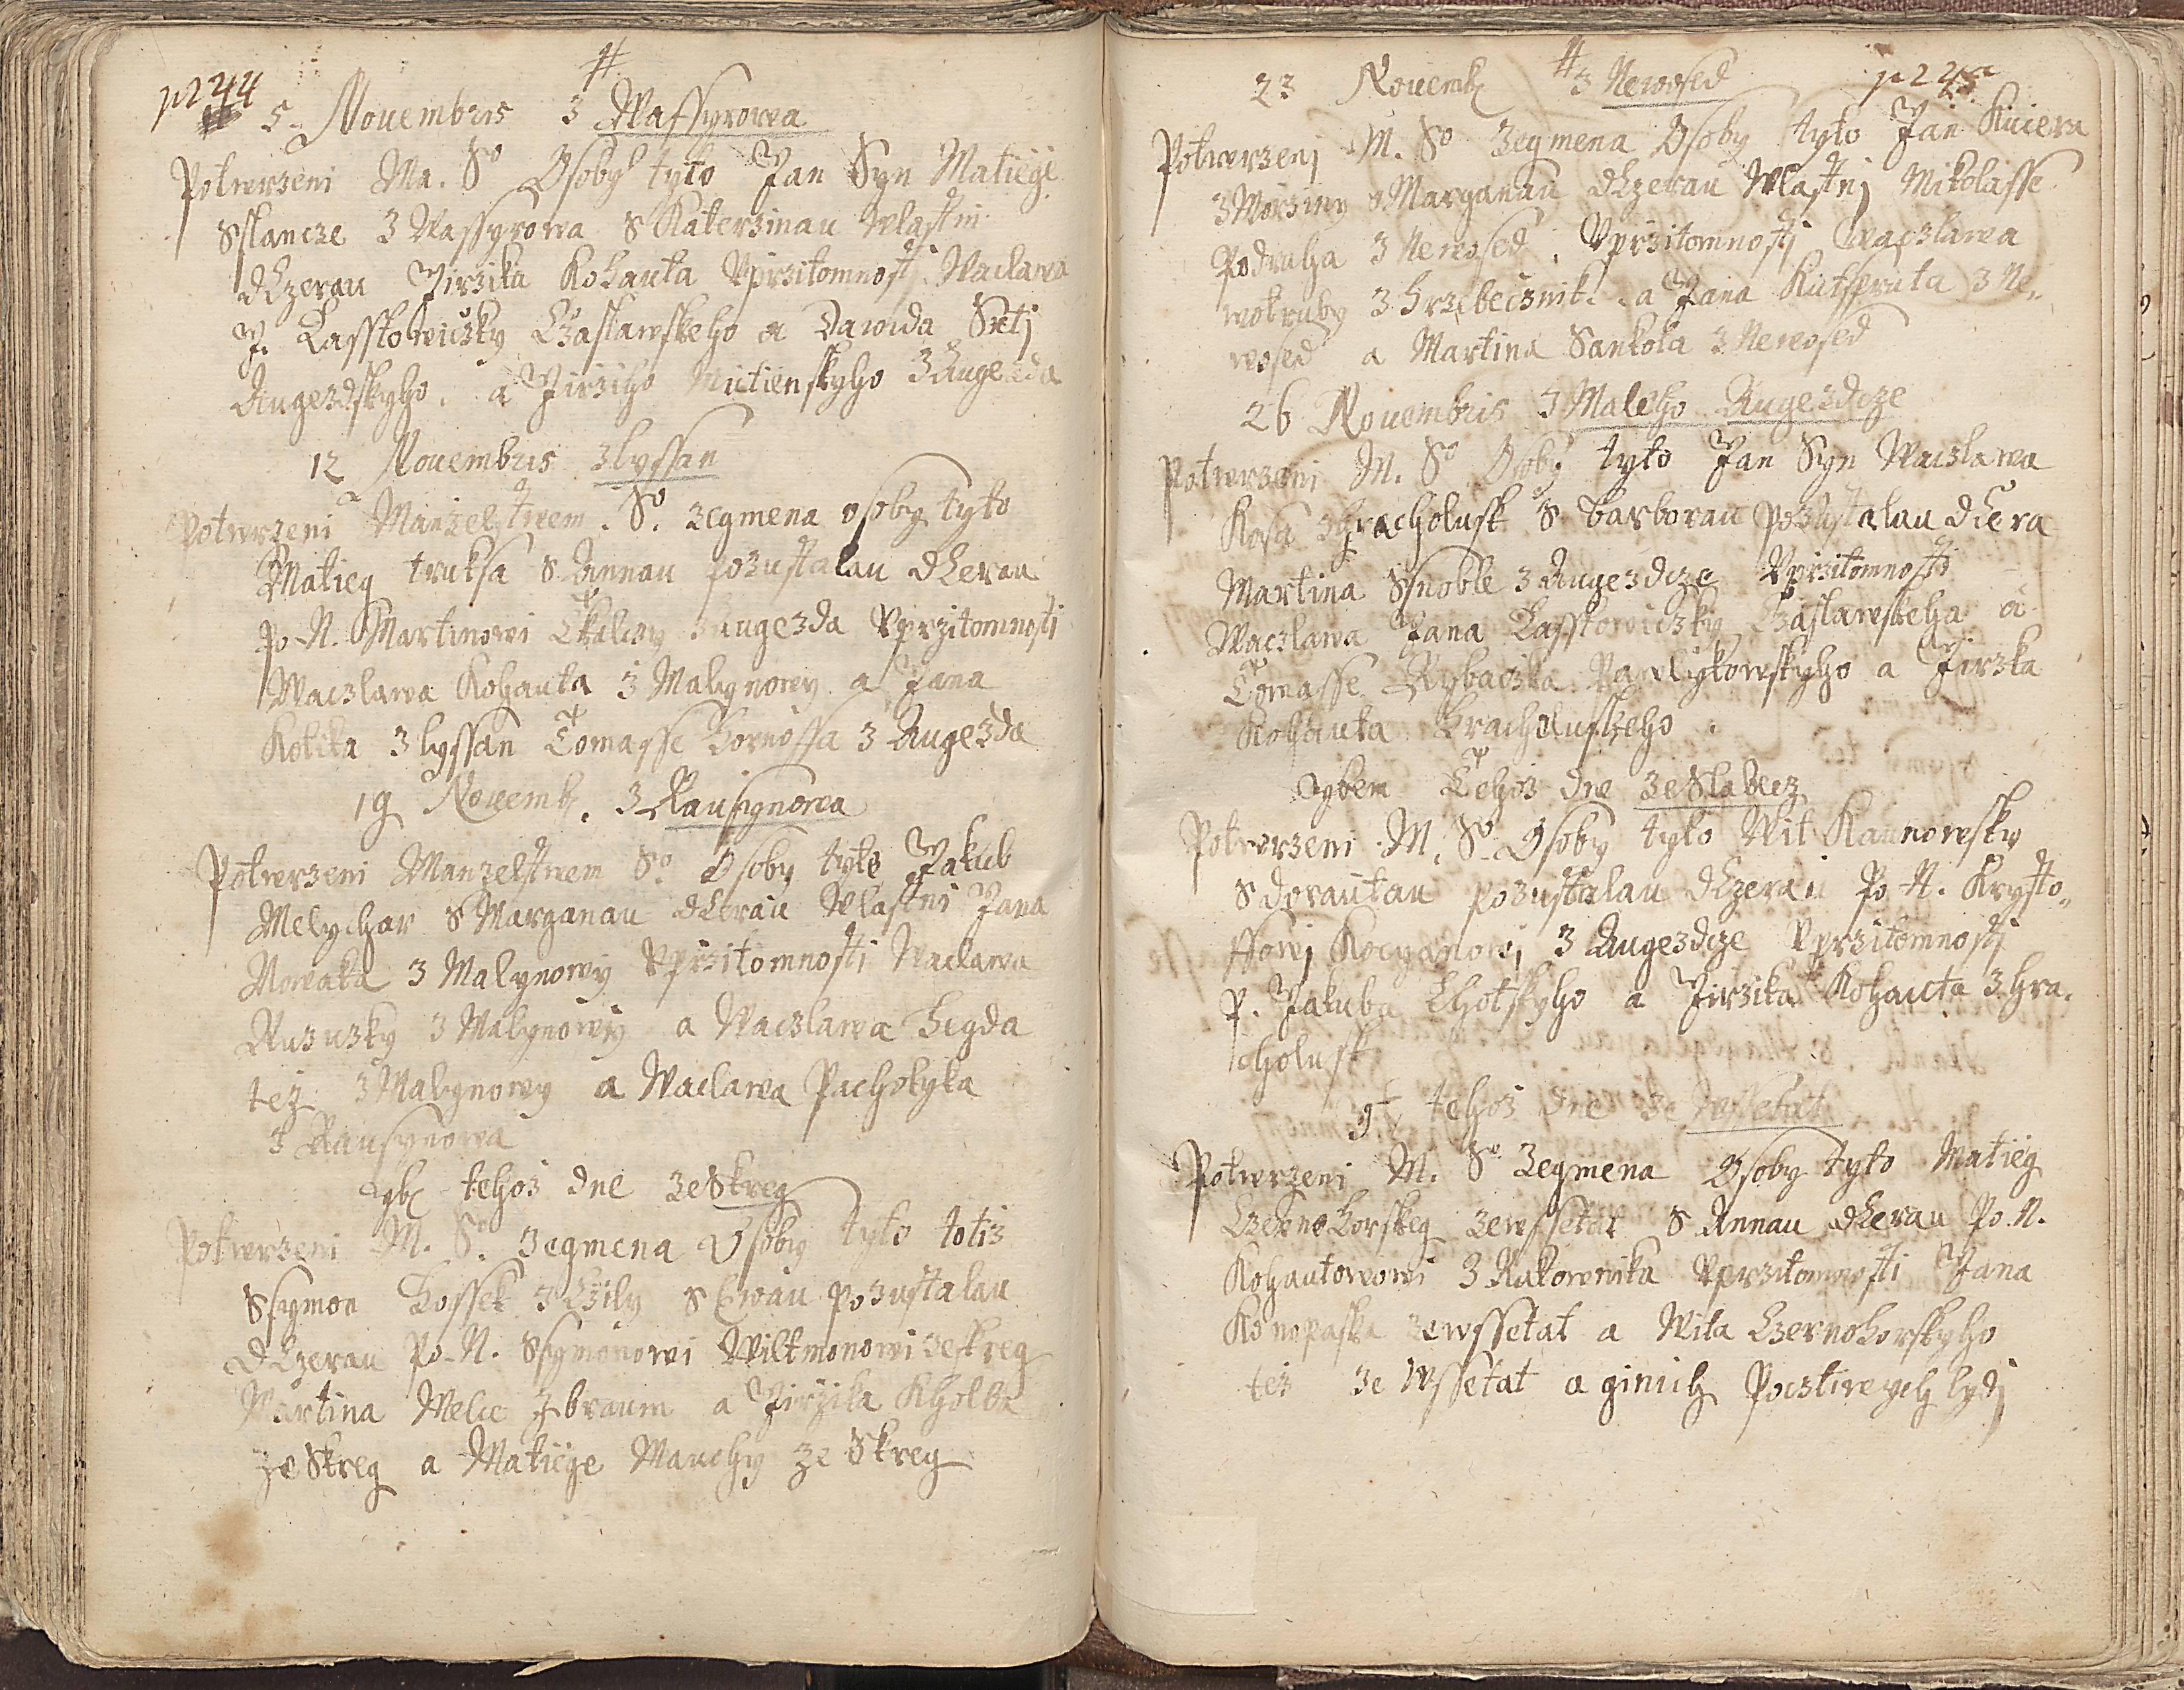 p 244
5. Nouembris 3 Wassyrowa
Potwrzeni Ma. So Osoby tyto Jan Syn Matiege
Sslancze 3 Wassyrowa S Katerzinau Wlastni
dczerau Jirzika Kohauta Vprzitomnosti Waclawa
J. Lasstowiczky Czaslawskeho a Dawida
Augezdskyho. a Jirziho 3 Augezda
12 Nouembris 3 lyssan
Potwrzeni Manzelstwem. So. zegmena osoby tyto
Matieg truksa S Annau pozustalau dcerau
po N. Martinowi Skalczy 3 augezda Vprzitomnosti
Waczlawa Kohauta 3 Malynowy a Jana
Kolika 3 lyssan Tomasse 3 Augezda
19 Nouemb. 3 Rausynowa
Potwrzeni Manzelstwem So Osoby tyto Jakub
Melychar S Marganau dcerau Wlastni Jana
Nowaka 3 Malynowy Vprzitomnosti Waclawa
Ruzuzky 3 Malynowy a Waczlawa Hegda
tez 3 Malynowy a Waclawa Pacholyka
3 Rausynowa
tehoz dne ze Skreg
Potwrzeni M. So. zegmena Osoby tyto totiz
Ssymon Hossek 3 Czily S Ewau pozustalau
dczerau Po N. Ssymonowi Wiltmonowi ze skreg
Martina Welce Zbraum a Jirzika Kholba
ze Skreg a Matiege Mauchy ze Skreg
p 245
23 Nouemb 3 Newosed
Potwrzenj M. So zegmena Osoby tyto Jan Kucera
3 Morziny s Marganau dczerau Wlastnj Mikolasse
Podruha 3 Newosed. Vprzitomnostj Waczlawa
wotruby 3 Hrzebecznik. a Jana 3 Ne„
wosed a Martina Sankota 3 Newosed
26 Nouembris 3 Maleho Augezdcze
Potwrzeni M. So Osoby tyto Jan Syn Waczlawa
Kosa 3 hracholusk S barborau pozustalau dcera
Martina Ssnoble 3 Augezdcze Vprzitomnosti
Waczlawa Jana Lasstowiczky Czaslawskeho a
Tomasse Rybaczka Pawlykowskyho a Jirzka
Kohauta Hracholuskeho.
Tehoz dne ze Slabecz
Potwrzeni M. So. Osoby tyto Wit Kaunowsky
S dorautau pozustalau dczerau Po N. Krysto„
ffowj Kocyanowi 3 Augezdcze Vprzitomnostj
P. Jakuba Lhotskyho a Jirzika Kohauta 3 hra„
cholusk
tehoz dne ze wssetat
Potwrzeni M. So zegmena Osoby tyto Matieg
Czernohorskeg zewssetat S Annau dcerau Po. N.
Kohautowowi 3 Rakownika Vprzitomnosti Jana
Konopaska zewssetat a Wita Czernohorskyho
tez ze wssetat a ginich Pocztiwegch lydj